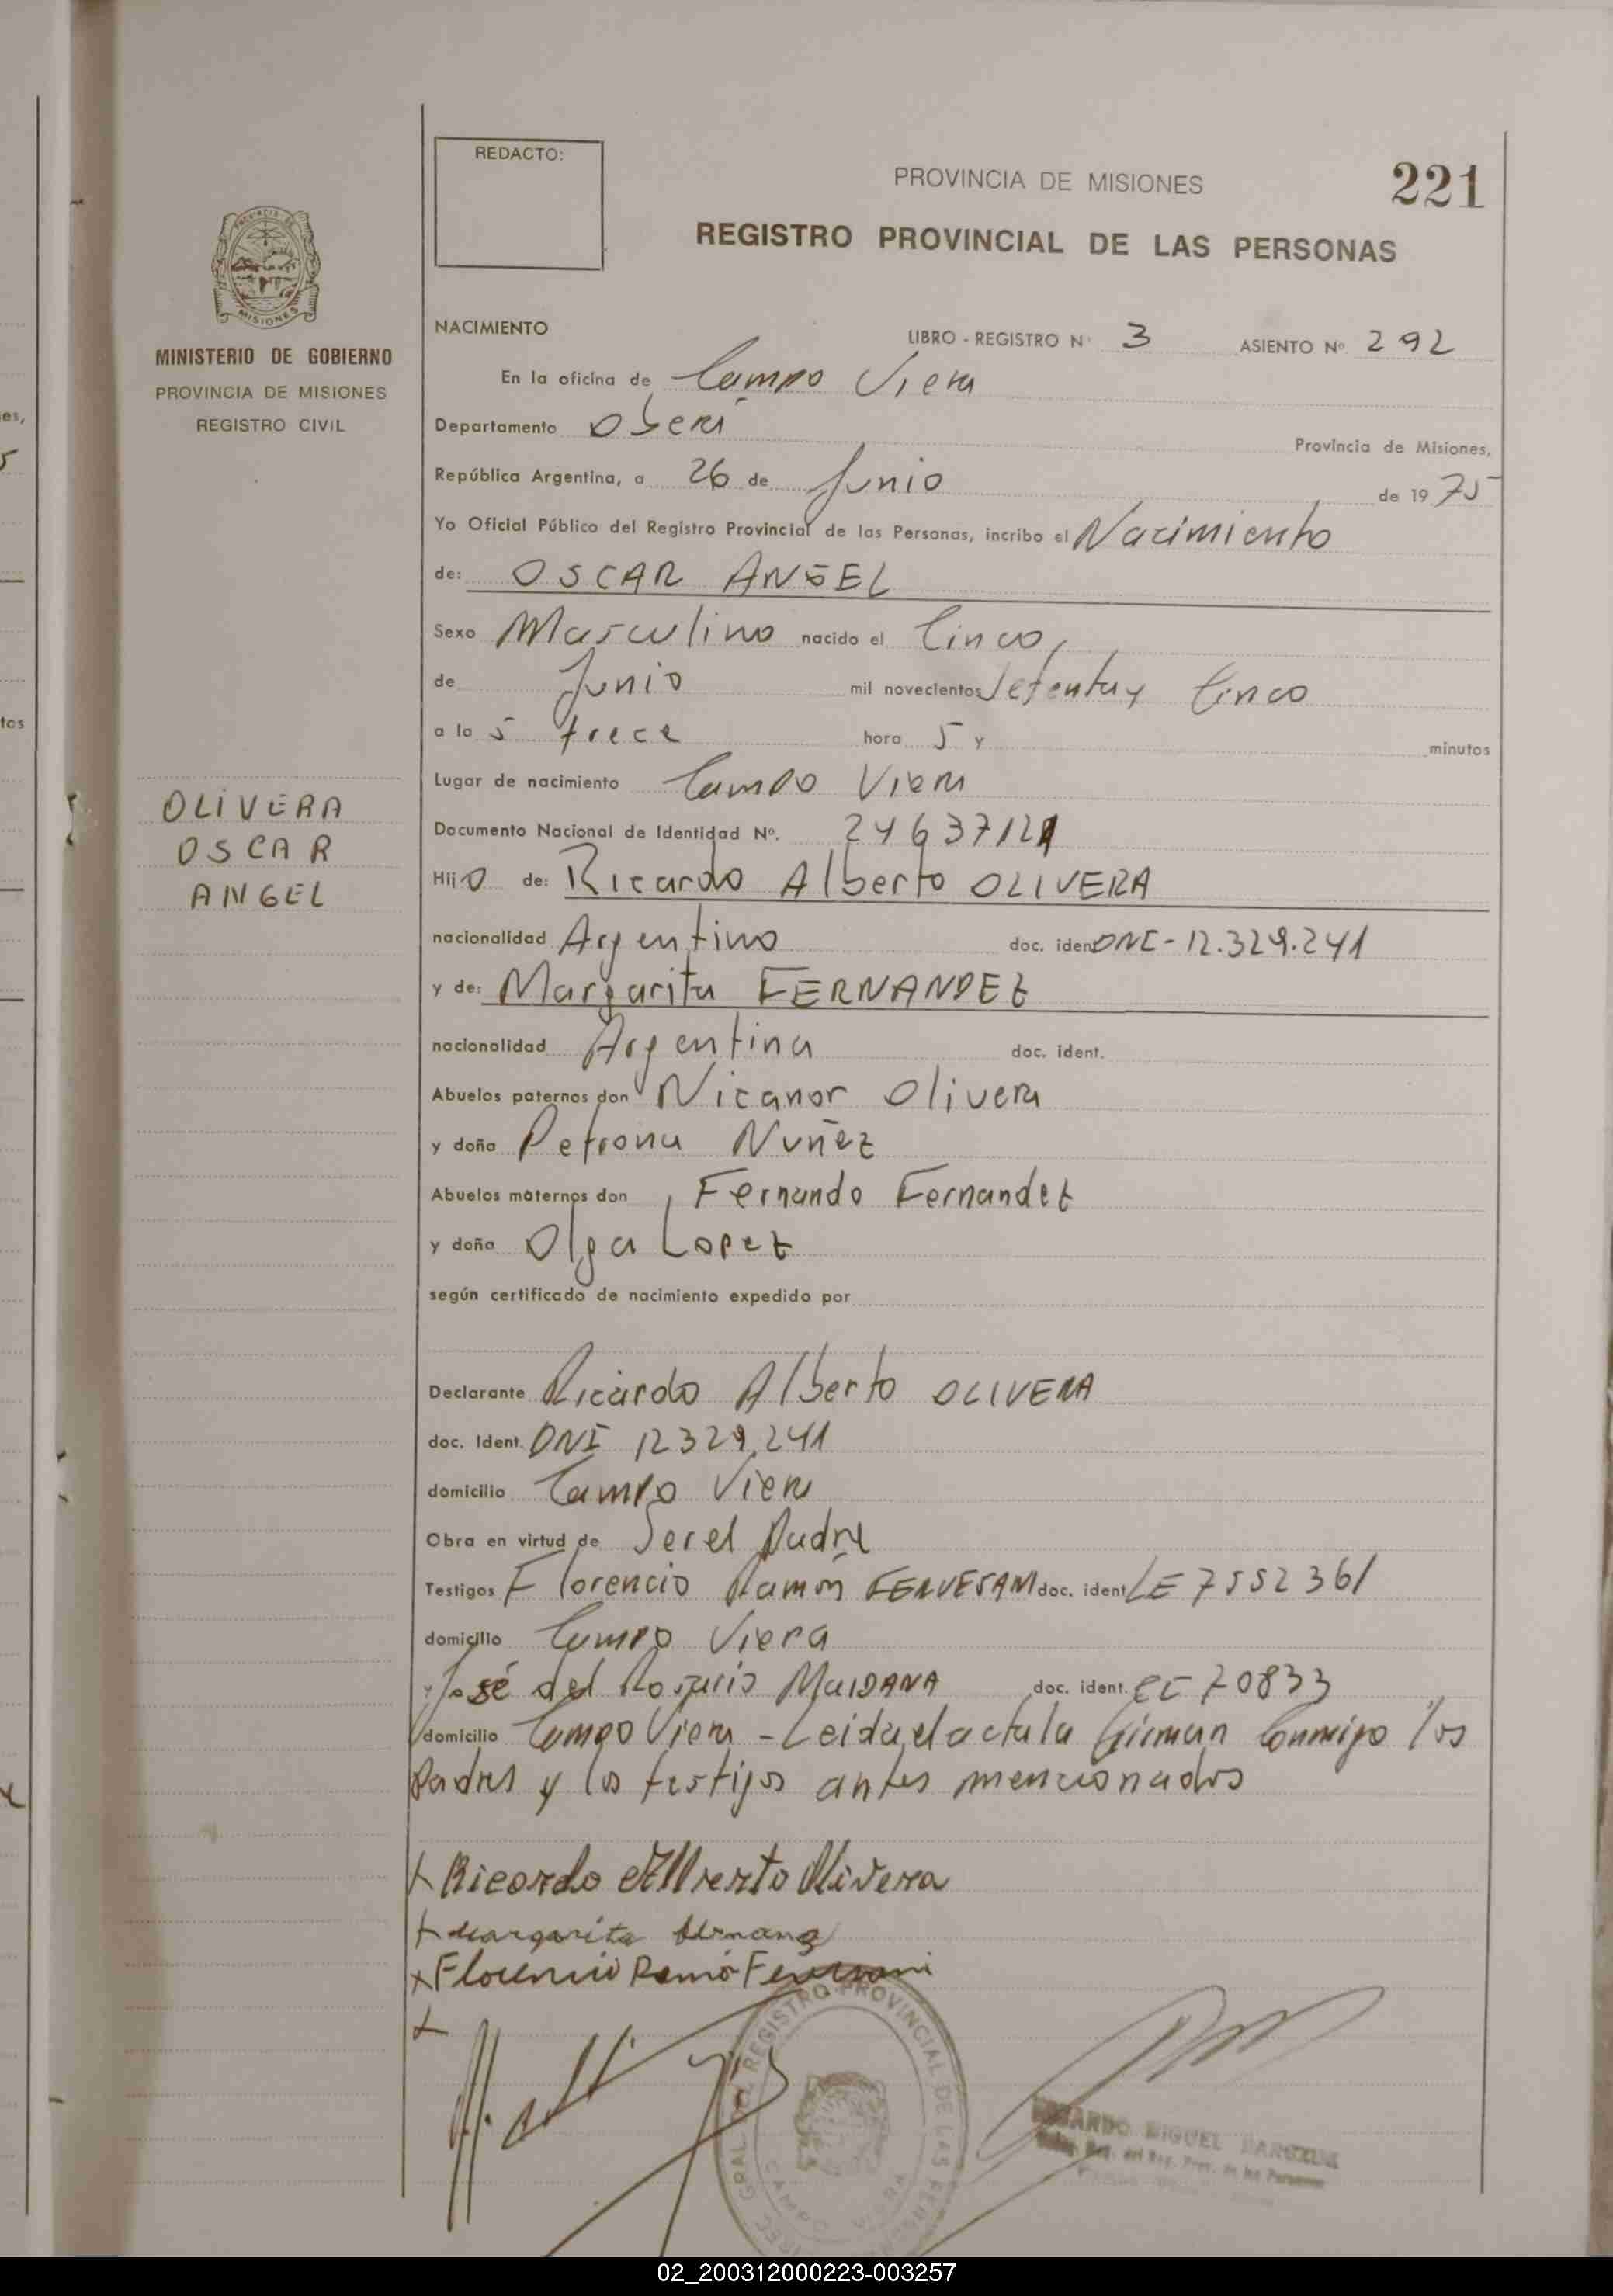 REDACTO:
PROVINCIA DE MISIONES
221
REGISTRO PROVINCIAL DE LAS PERSONAS
MISIONES
MINISTERIO DE GOBIERNO
PROVINCIA DE MISIONES
REGISTRO CIVIL
NACIMIENTO LIBRO - REGISTRO N° 3 ASIENTO Nº 292
En la oficina de Campo Viera
Departamento Oberá Provincia de Misiones,
República Argentina, a 26 de Junio de 1975
Yo Oficial Público del Registro Provincial de las Personas, incribo el Nacimiento
de: OSCAR ANGEL
Sexo Masculino nacido el Cinco,
de Junio mil novecientos Setenta y Cinco
a la s trece hora s y minutos
Lugar de nacimiento Campo Viera
OLIVERA
OSCAR
ANGEL
Documento Nacional de Identidad Nº. 24637121
Hijo de: Ricardo Alberto OLIVERA
nacionalidad Argentino doc. iden DNI - 12.329.241
y de: Margarita FERNANDEZ
nacionalidad Argentina doc. ident.
Abuelos paternos don Nicanor Olivera
y doña Petrona Nuñez
Abuelos maternos don Fernando Fernandez
y doña Olga Lopez
según certificado de nacimiento expedido por
Declarante Ricardo Alberto OLIVERA
doc. Ident. DNI 12329.241
domicilio Campo Viera
Obra en virtud de Ser el Padre
Testigos Florencio Ramón doc. ident LE 7552361
domicilio Campo Viera
y José del Rosario MAIDANA doc. ident. 70833
domicilio Campo Viera - Leida el acta la firman Conmigo los
Padres y los testigos antes mencionados
Ricardo Alberto Olivera
Margarita
Florencio Ramó
GRAL DEL REGISTRO PROVINCIAL DE LAS PERS
CAMPO VIERA
MIGUEL
02_200312000223-003257